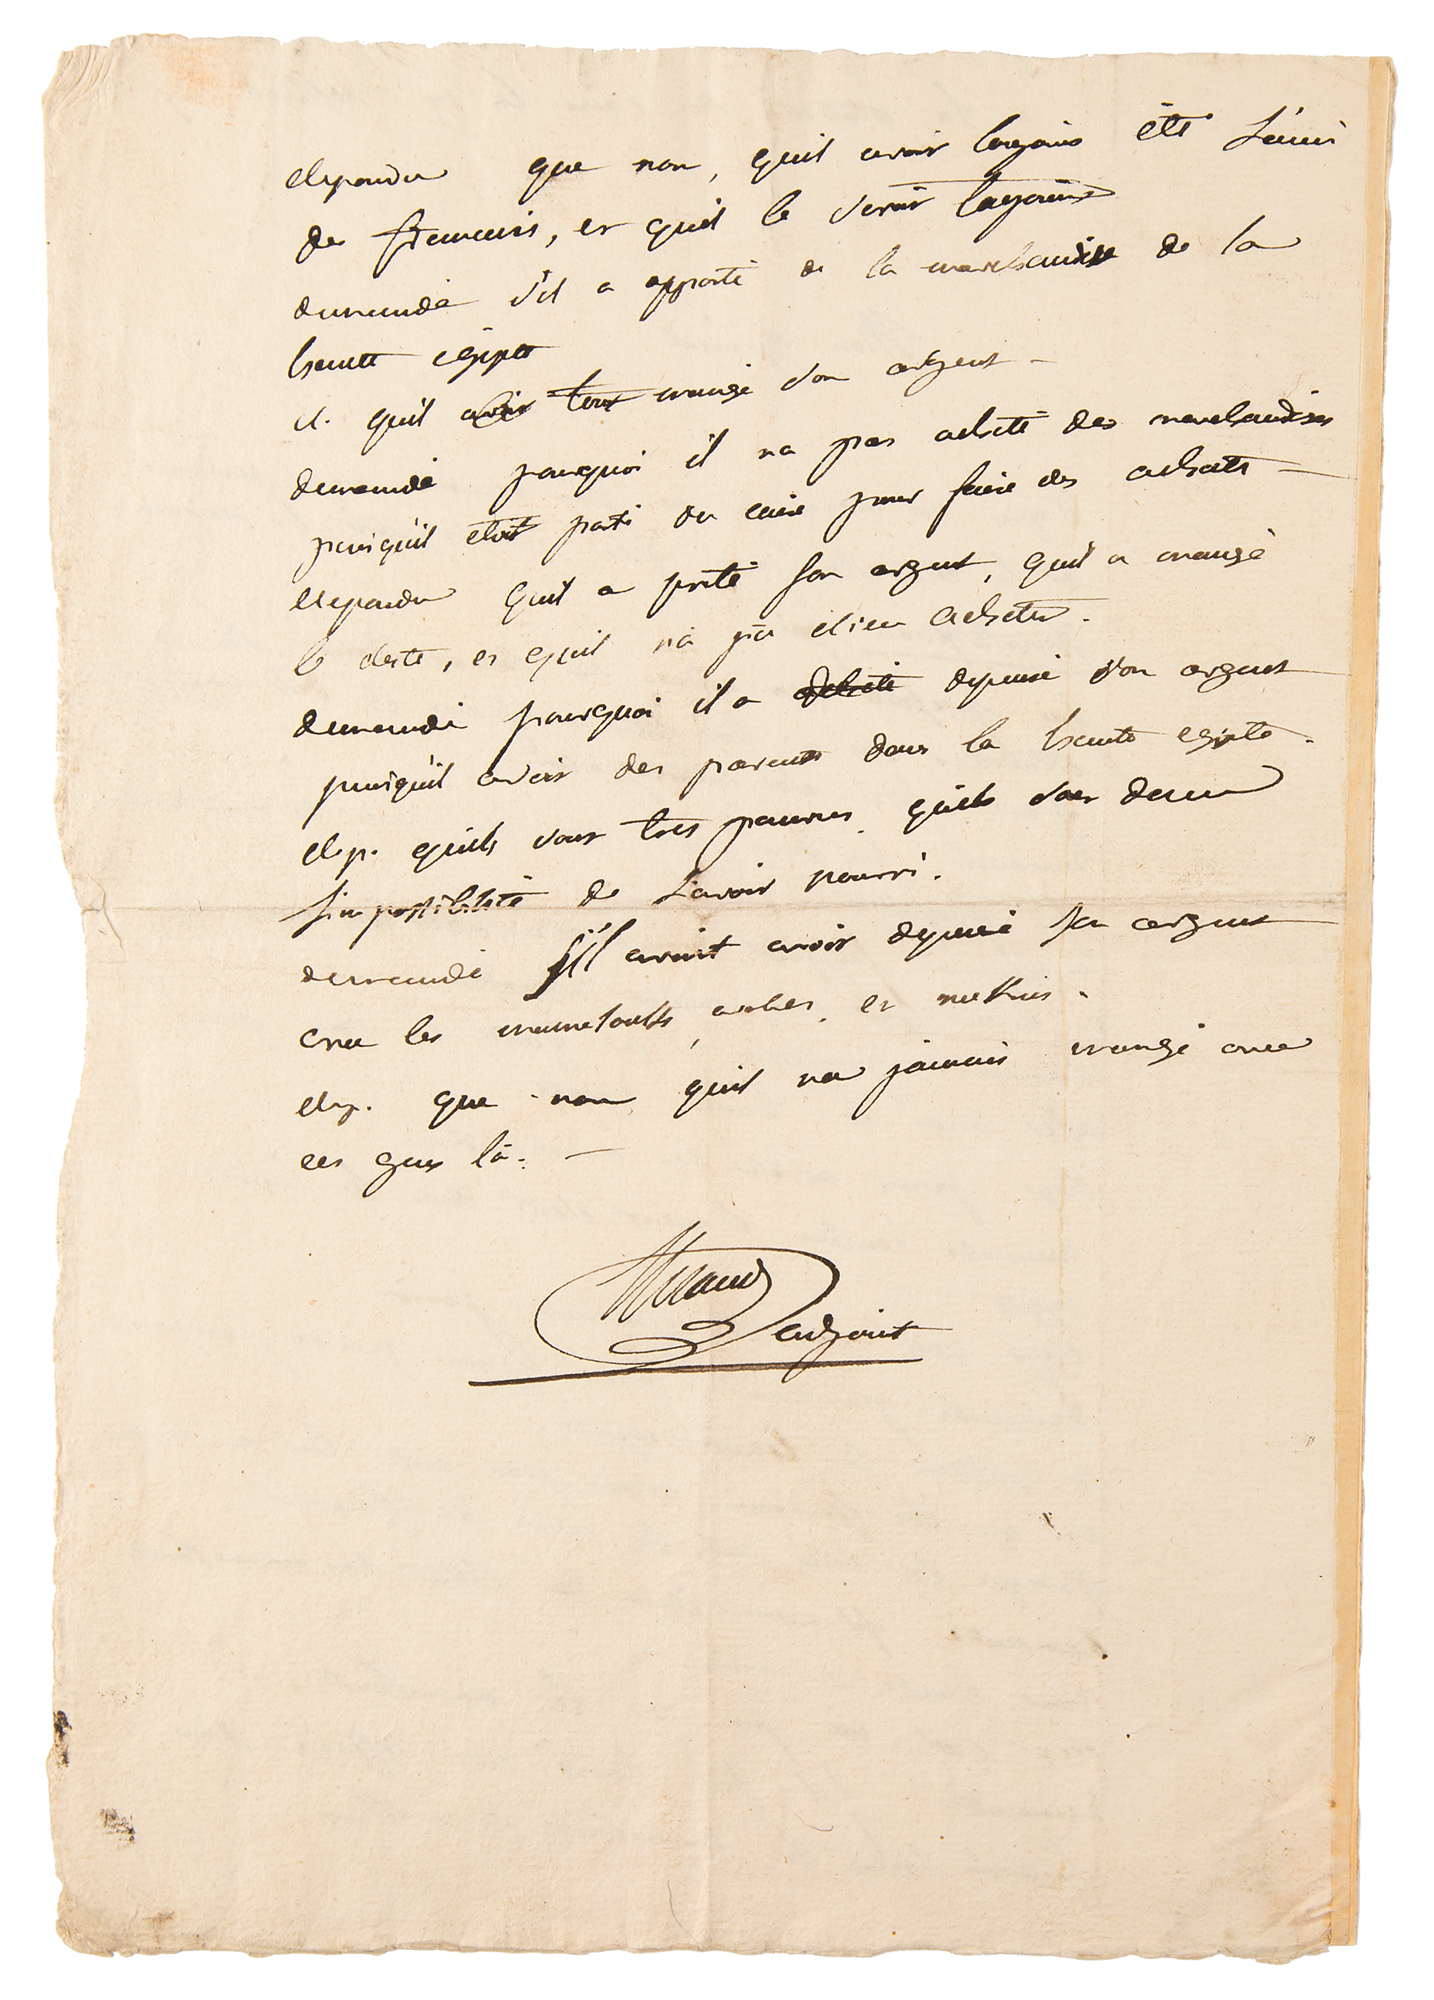 repondu que non, quil avoir toujours été l'ami
des francais, et quil le seroit toujours
demandé s'il a apporté de la marchandise de la
haute égipte
r. quil avoit tout mangé son argent -
demandé pourquoi il na pas acheté des marchandises
puisquil etoit parti du caire pour faire des achats -
repondu quil a preté son argent, quil a mangé
le reste, et quil na pu rien acheter.
demandé pourquoi il a acheté depensé son argent
puisquil avoir des parents dans la haute egipte.
rep. quils sont tres pauvres, quils sont dans
l'impossibilité de l'avoir nourri.
demandé s'il avoit avoir depensé son argent
avec les mameloucks, arabes, et mekins.
rep. que non quil na jamais mangé avec
ces gens là. -
adjoint